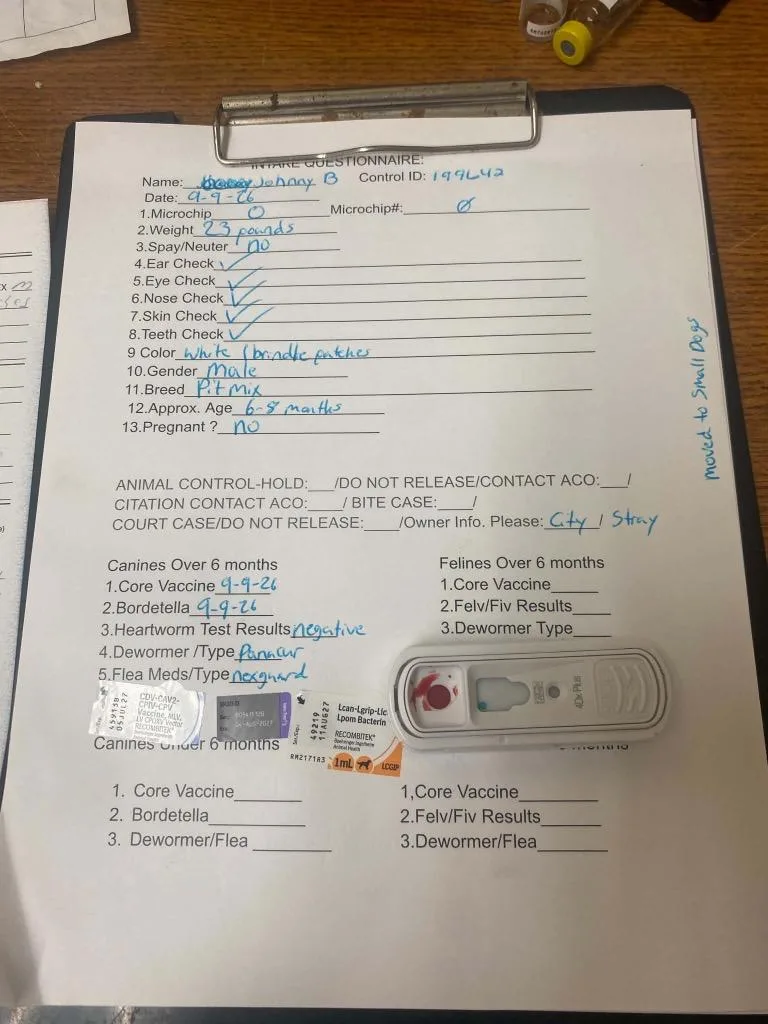 INTAKE QUESTIONNAIRE:
Name: Johnny B Control ID: 199642
Date: 9-9-26
1.Microchip O Microchip#: Ø
2.Weight 23 pounds
3.Spay/Neuter no
4.Ear Check ✓
5.Eye Check ✓
6.Nose Check ✓
7.Skin Check ✓
8.Teeth Check ✓
9 Color white / brindle patches
10.Gender Male
11.Breed Pit mix
12.Approx. Age 6-8 months
13.Pregnant ? no
moved to Small Dogs
ANIMAL CONTROL-HOLD:___/DO NOT RELEASE/CONTACT ACO:___/
CITATION CONTACT ACO:____/ BITE CASE:____/
COURT CASE/DO NOT RELEASE:____/Owner Info. Please: City / Stray
Canines Over 6 months
1.Core Vaccine 9-9-26
2.Bordetella 9-9-26
3.Heartworm Test Results negative
4.Dewormer /Type Panacur
5.Flea Meds/Type nexguard
Felines Over 6 months
1.Core Vaccine_____
2.Felv/Fiv Results____
3.Dewormer Type____
CDV-CAV2-
CPIV-CPV
Vaccine, MLV,
LV CPOXV Vector
RECOMBITEK®
Boehringer Ingelheim
Animal Health
05JUL27
Lcan-Lgrip-Lic
Lpom Bacterin
49219
11AUG27
RECOMBITEK®
Boehringer Ingelheim
Animal Health
RM2171R3
1mL
LCGIP
4Dx Plus
Canines Under 6 months
months
1. Core Vaccine________
2. Bordetella__________
3. Dewormer/Flea __________
1,Core Vaccine_________
2.Felv/Fiv Results_______
3.Dewormer/Flea________